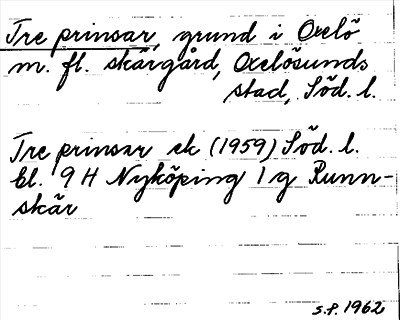 Tre prinsar, grund i Oxelö
m. fl. skärgård, Oxelösunds
stad, Söd. l.
Tre prinsar ek (1959) Söd. l.
bl. 9 H Nyköping 1 g Runn-
skär
s.p. 1962